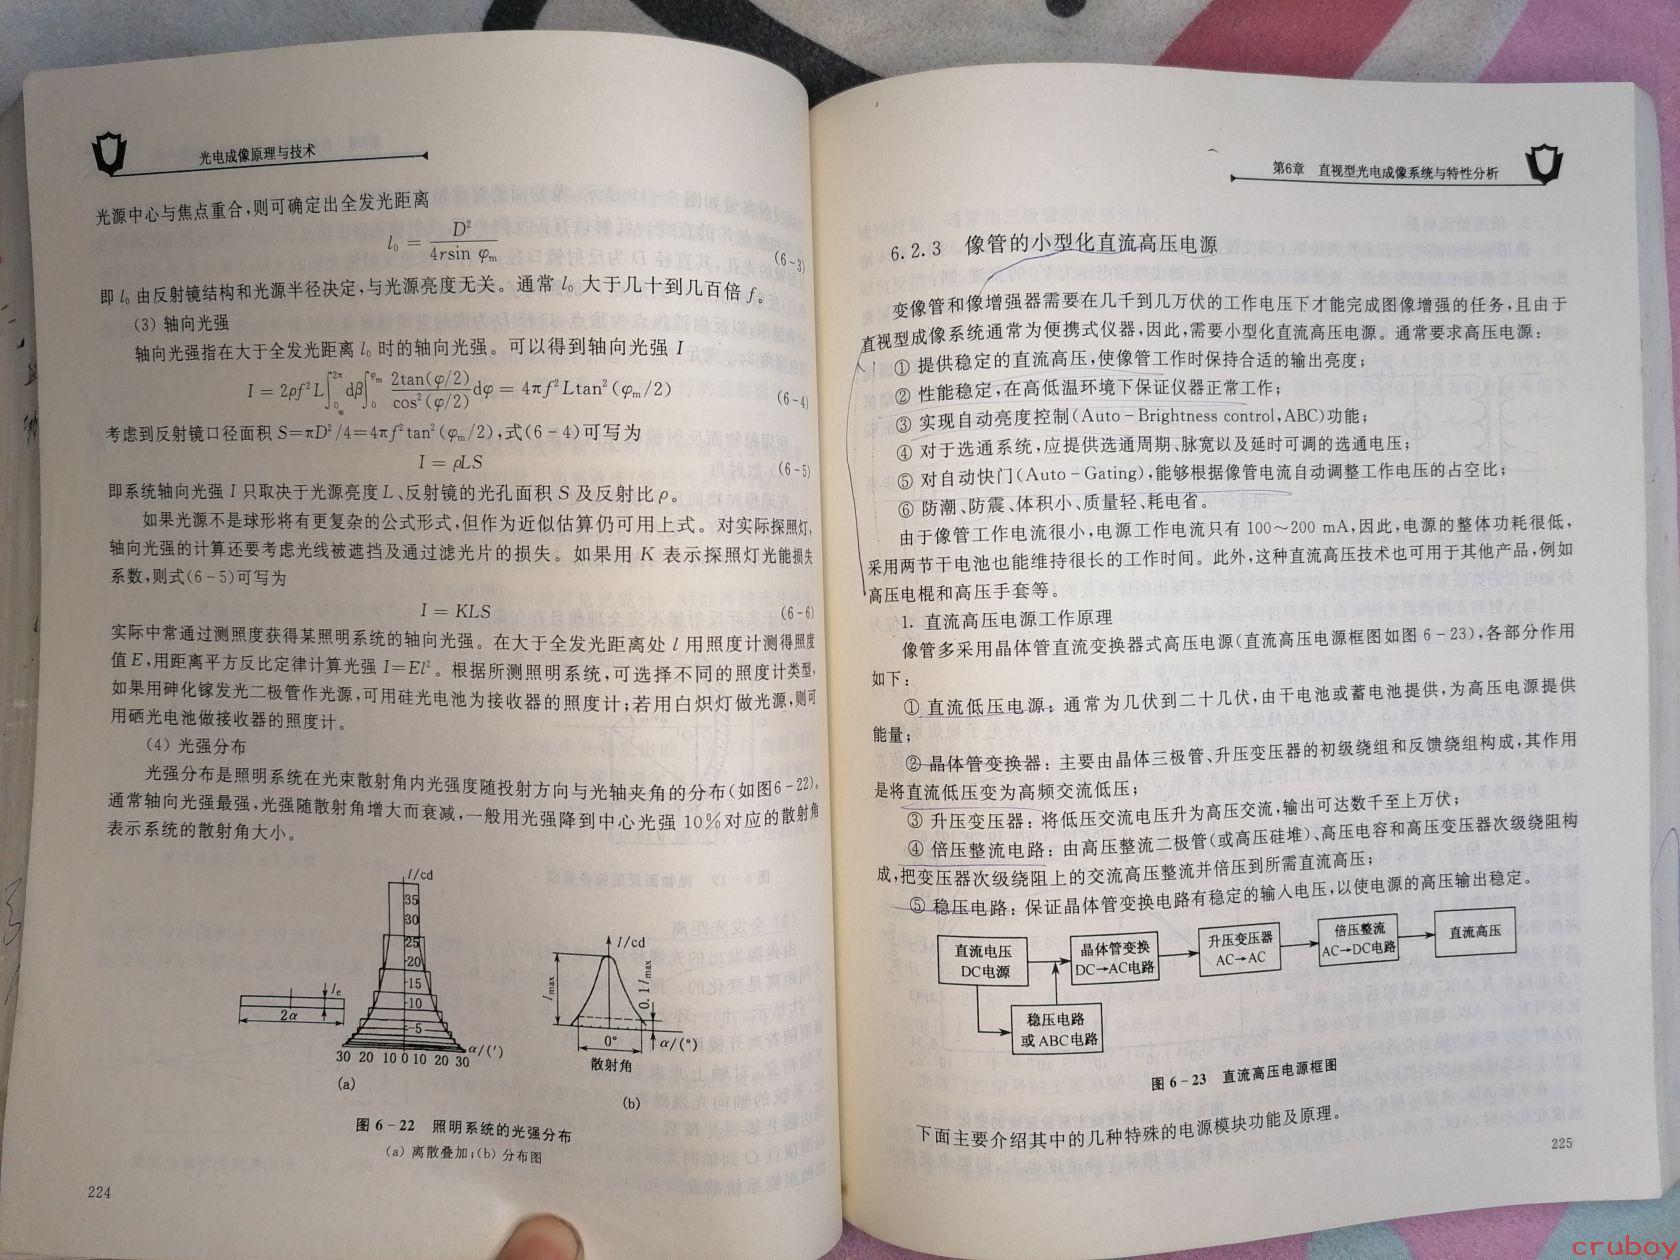 光电成像原理与技术
光源中心与焦点重合,则可确定出全发光距离
l₀ = D² / 4rsin φₘ (6-3)
即 l₀ 由反射镜结构和光源半径决定,与光源亮度无关。通常 l₀ 大于几十到几百倍 f。
(3) 轴向光强
轴向光强指在大于全发光距离 l₀ 时的轴向光强。可以得到轴向光强 I
I = 2ρf²L∫₀^2π dβ∫₀^φₘ 2tan(φ/2) / cos²(φ/2) dφ = 4πf²Ltan²(φₘ/2) (6-4)
考虑到反射镜口径面积 S=πD²/4=4πf²tan²(φₘ/2),式(6-4)可写为
I = ρLS (6-5)
即系统轴向光强 I 只取决于光源亮度 L、反射镜的光孔面积 S 及反射比 ρ。
如果光源不是球形将有更复杂的公式形式,但作为近似估算仍可用上式。对实际探照灯,
轴向光强的计算还要考虑光线被遮挡及通过滤光片的损失。如果用 K 表示探照灯光能损失
系数,则式(6-5)可写为
I = KLS (6-6)
实际中常通过测照度获得某照明系统的轴向光强。在大于全发光距离处 l 用照度计测得照度
值 E,用距离平方反比定律计算光强 I=El²。根据所测照明系统,可选择不同的照度计类型,
如果用砷化镓发光二极管作光源,可用硅光电池为接收器的照度计;若用白炽灯做光源,则可
用硒光电池做接收器的照度计。
(4) 光强分布
光强分布是照明系统在光束散射角内光强度随投射方向与光轴夹角的分布(如图6-22)。
通常轴向光强最强,光强随散射角增大而衰减,一般用光强降到中心光强 10%对应的散射角
表示系统的散射角大小。
I/cd
35
30
25
20
15
10
5
30 20 10 0 10 20 30
α/(′)
Iₑ
2α
(a)
I/cd
Iₘₐₓ
0.1Iₘₐₓ
0°
α/(°)
散射角
(b)
图 6-22 照明系统的光强分布
(a) 离散叠加;(b) 分布图
224
第6章 直视型光电成像系统与特性分析
6.2.3 像管的小型化直流高压电源
变像管和像增强器需要在几千到几万伏的工作电压下才能完成图像增强的任务,且由于
直视型成像系统通常为便携式仪器,因此,需要小型化直流高压电源。通常要求高压电源:
① 提供稳定的直流高压,使像管工作时保持合适的输出亮度;
② 性能稳定,在高低温环境下保证仪器正常工作;
③ 实现自动亮度控制(Auto-Brightness control,ABC)功能;
④ 对于选通系统,应提供选通周期、脉宽以及延时可调的选通电压;
⑤ 对自动快门(Auto-Gating),能够根据像管电流自动调整工作电压的占空比;
⑥ 防潮、防震、体积小、质量轻、耗电省。
由于像管工作电流很小,电源工作电流只有 100~200 mA,因此,电源的整体功耗很低,
采用两节干电池也能维持很长的工作时间。此外,这种直流高压技术也可用于其他产品,例如
高压电棍和高压手套等。
1. 直流高压电源工作原理
像管多采用晶体管直流变换器式高压电源(直流高压电源框图如图 6-23),各部分作用
如下:
① 直流低压电源:通常为几伏到二十几伏,由干电池或蓄电池提供,为高压电源提供
能量;
② 晶体管变换器:主要由晶体三极管、升压变压器的初级绕组和反馈绕组构成,其作用
是将直流低压变为高频交流低压;
③ 升压变压器:将低压交流电压升为高压交流,输出可达数千至上万伏;
④ 倍压整流电路:由高压整流二极管(或高压硅堆)、高压电容和高压变压器次级绕阻构
成,把变压器次级绕阻上的交流高压整流并倍压到所需直流高压;
⑤ 稳压电路:保证晶体管变换电路有稳定的输入电压,以使电源的高压输出稳定。
直流电压
DC电源
晶体管变换
DC→AC电路
升压变压器
AC→AC
倍压整流
AC→DC电路
直流高压
稳压电路
或 ABC电路
图 6-23 直流高压电源框图
下面主要介绍其中的几种特殊的电源模块功能及原理。
225
cruboy